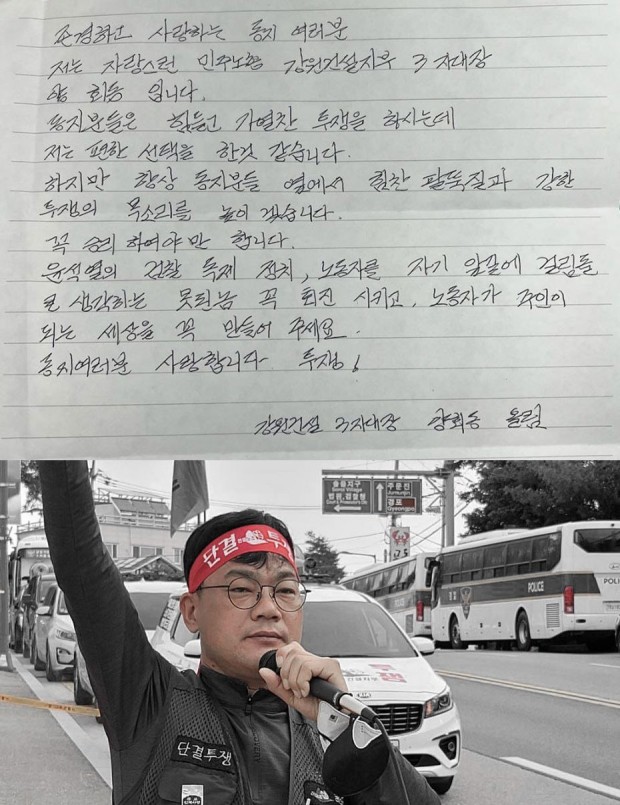 존경하고 사랑하는 동지 여러분
저는 자랑스런 민주노총 강원건설지부 3지대장
양회동 입니다.
동지분들은 힘들고 가열찬 투쟁을 하시는데
저는 편한 선택을 한것 같습니다.
하지만 항상 동지분들 옆에서 힘찬 팔뚝질과 강한
투쟁의 목소리를 높이 겠습니다.
꼭 승리 하여야만 합니다.
윤석열의 검찰 독재 정치, 노동자를 자기 앞길에 걸림돌
로 생각하는 못된놈 꼭 퇴진 시키고, 노동자가 주인이
되는 세상을 꼭 만들어 주세요.
동지여러분 사랑합니다 투쟁!
강원건설 3지대장 양회동 올림
솔올지구
법원,검찰청
주문진
Jumunjin
경포
Gyeongpo
단결 투쟁
POLICE
POLICE
KIA
단결투쟁